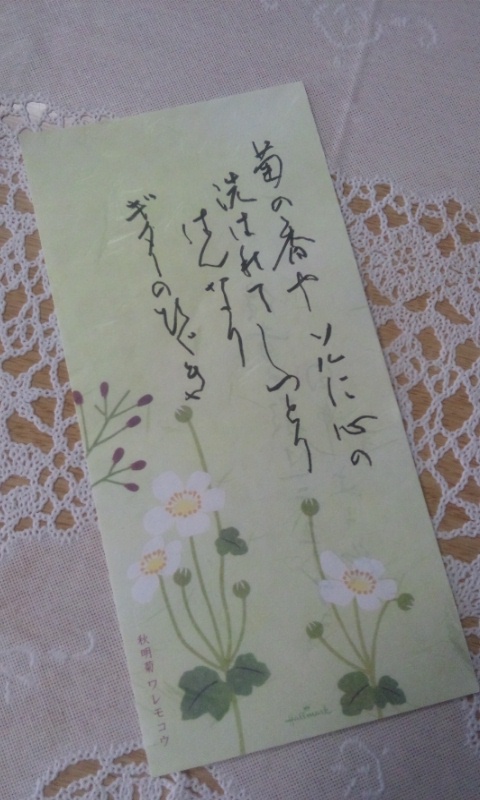 菊の香や ソルに心の
洗はれて しっとり
はんなり
ギターのひゞき
秋明菊 ワレモコウ
Hallmark